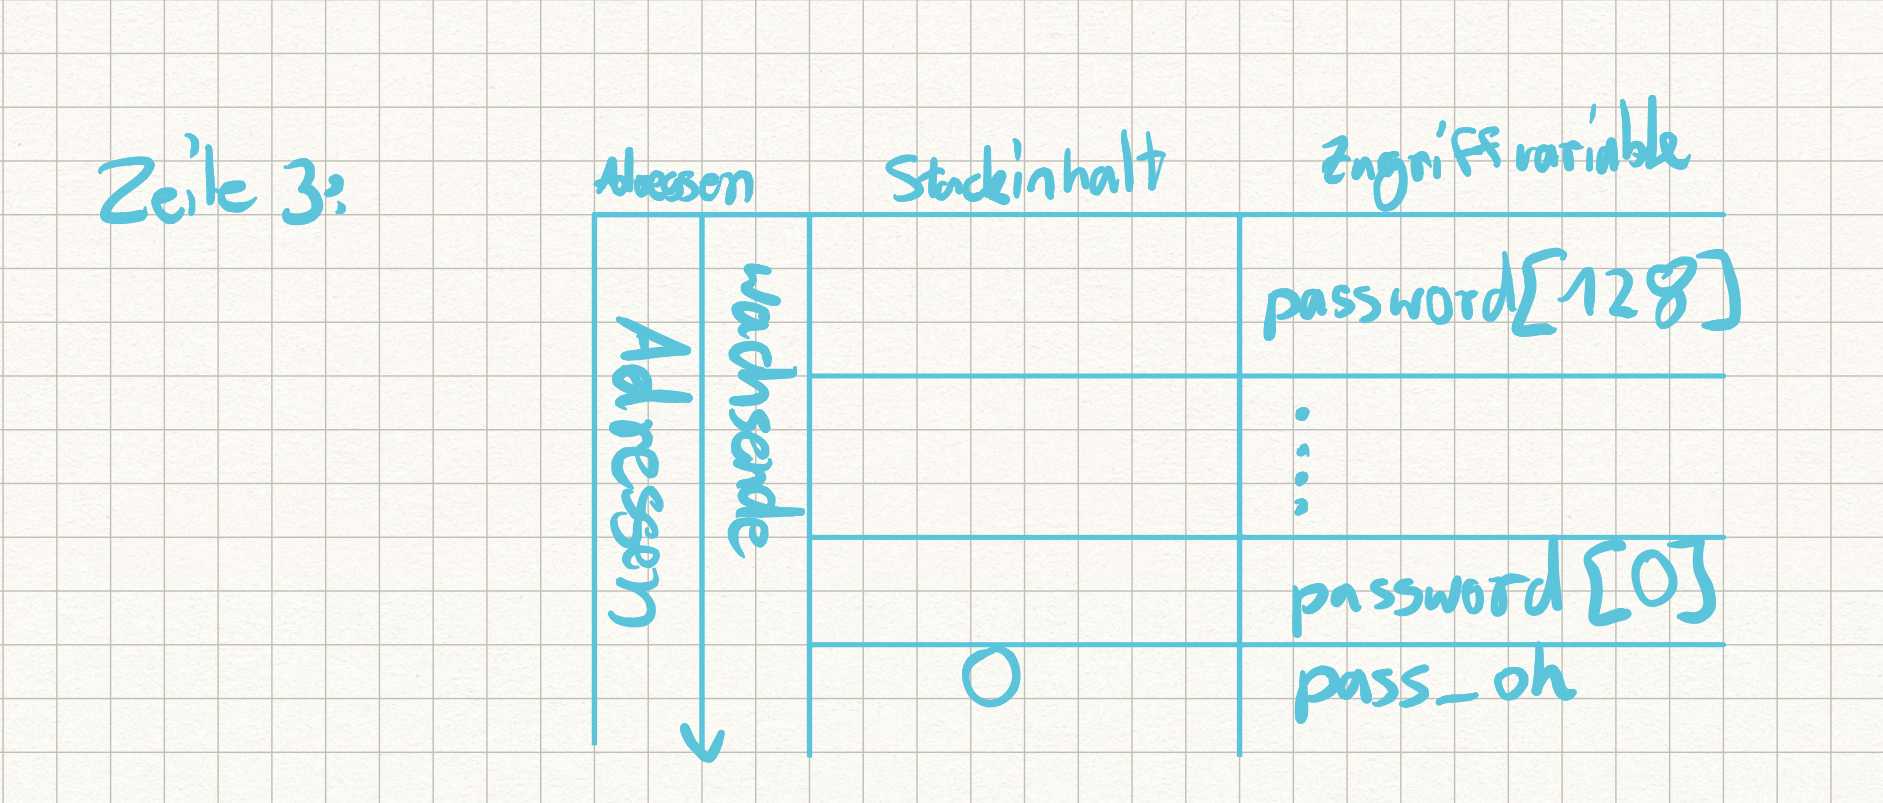 Zeile 3:
Adressen
Stackinhalt
Zugriffvariable
wachsende
Adressen
password[128]
password[0]
0
pass_ok